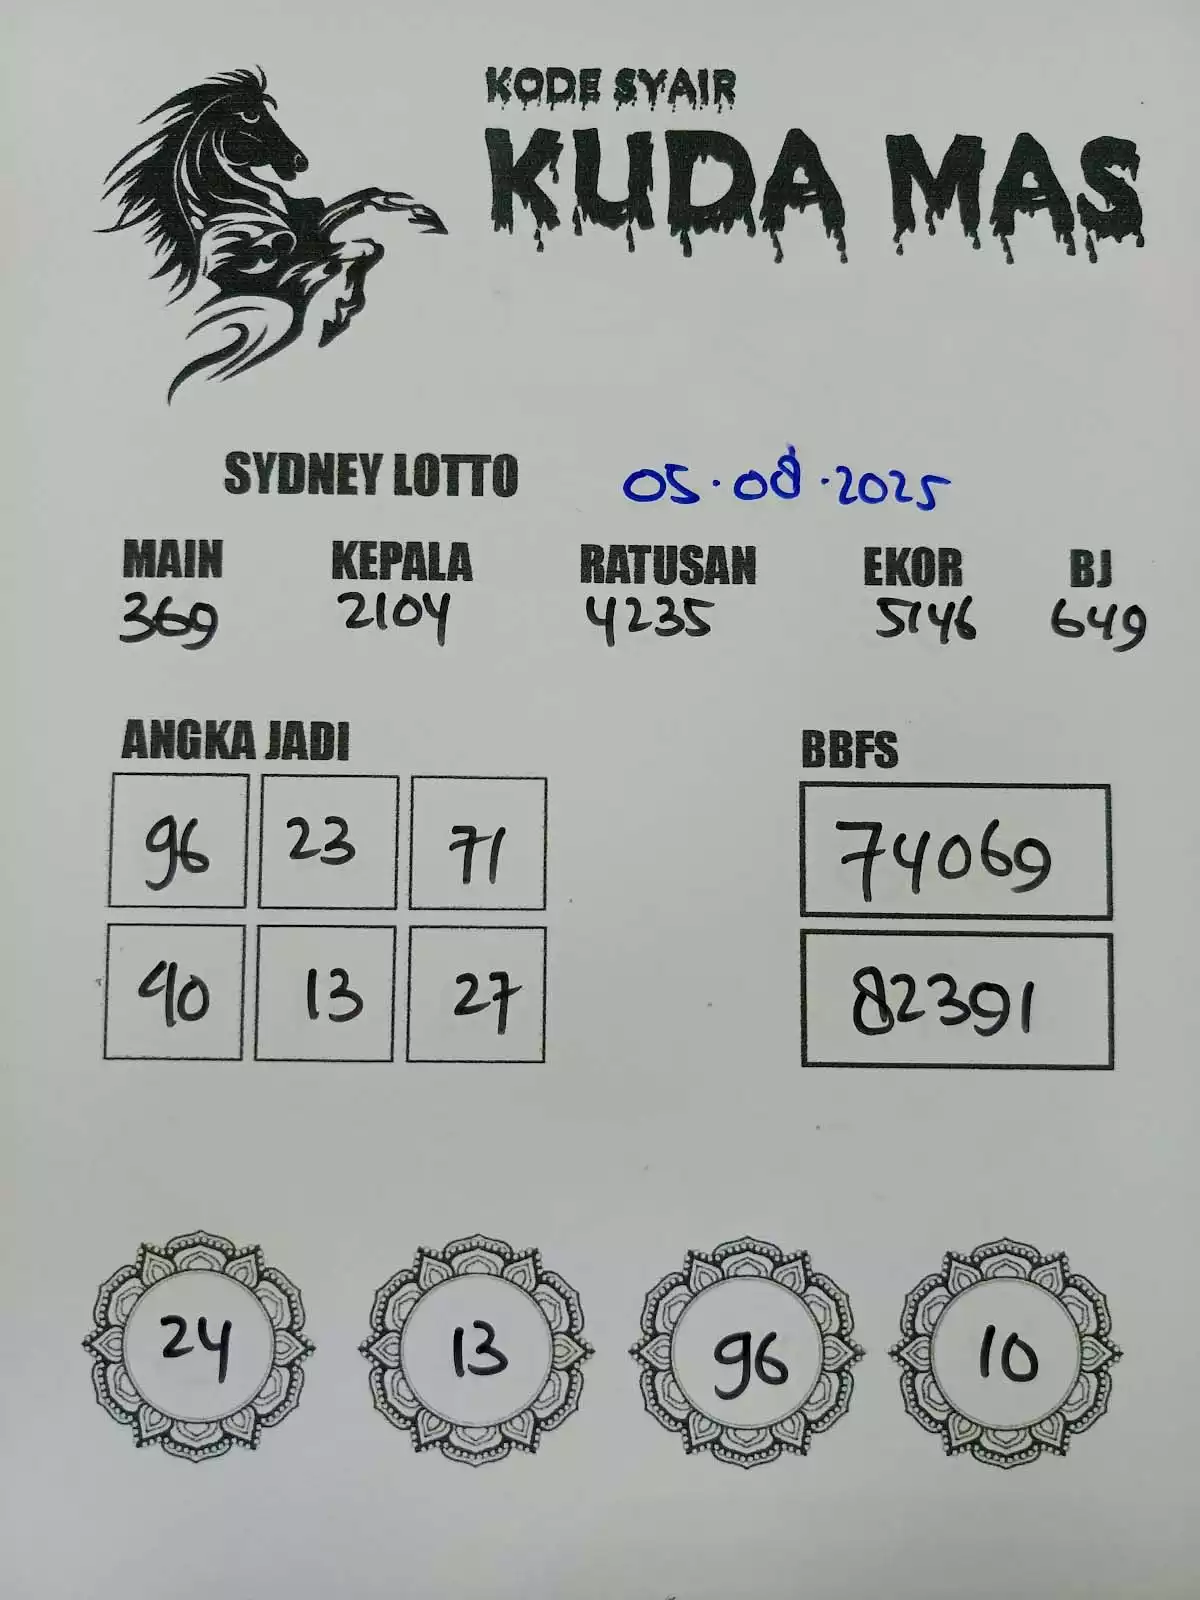 KODE SYAIR
KUDA MAS
SYDNEY LOTTO 05.08.2025
MAIN KEPALA RATUSAN EKOR BJ
369 2104 4235 5146 649
ANGKA JADI BBFS
96 23 71 74069
40 13 27 82391
24 13 96 10